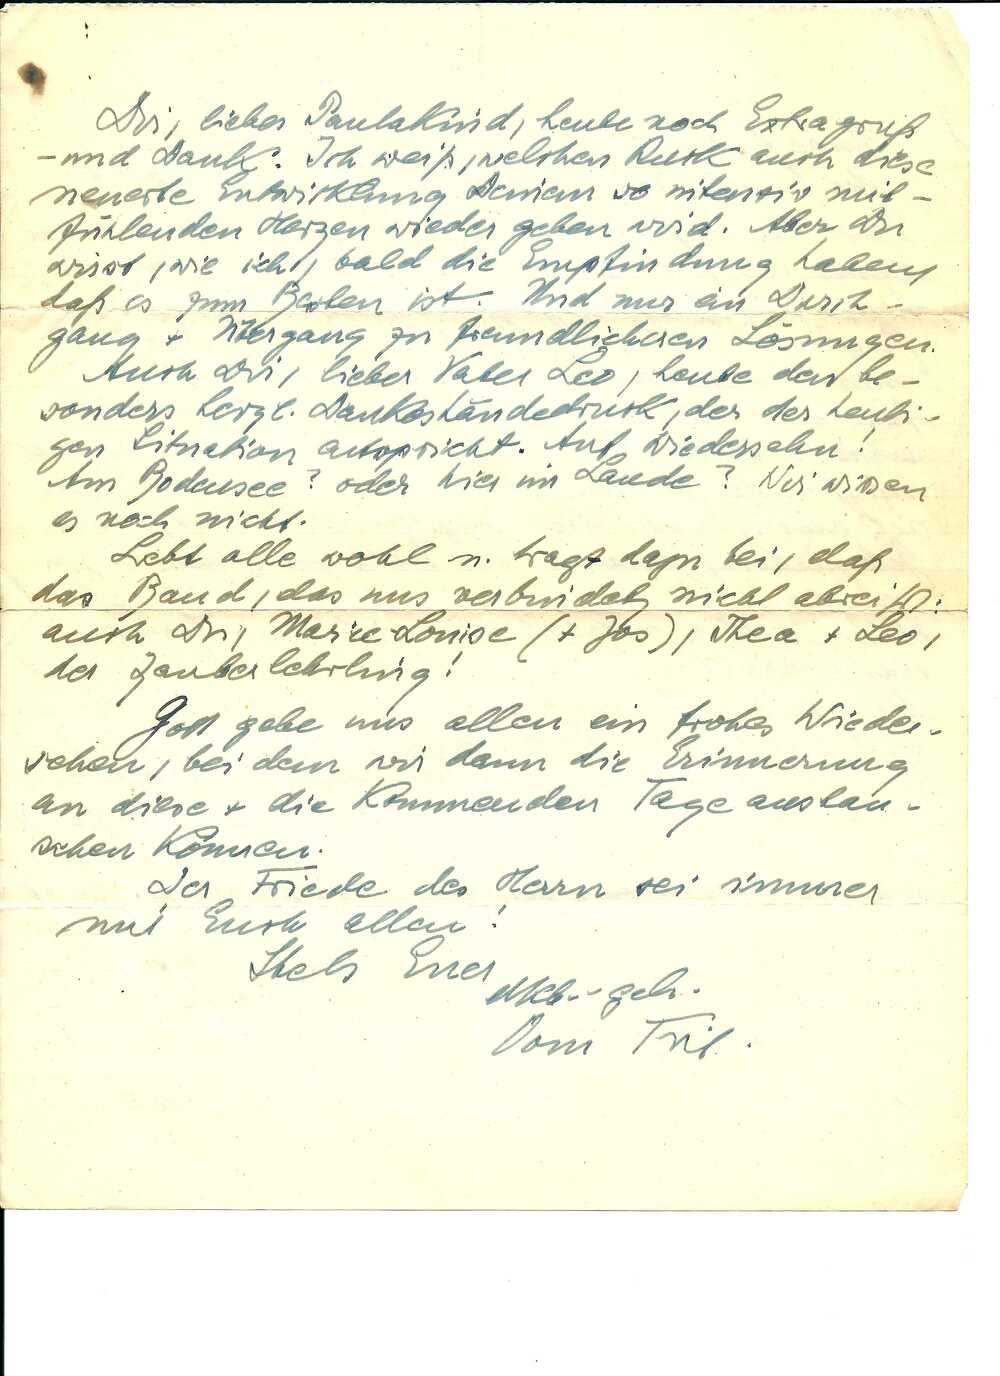 Dir, liebes Paulakind, heute noch Extragruß
- und Dank. Ich weiß, welchen Ruck auch diese
neueste Entwicklung Deinem so intensiv mit-
fühlenden Herzen wieder geben wird. Aber Du
wirst, wie ich, bald die Empfindung haben,
daß es zum Besten ist. Und nur ein Durch-
gang + Übergang zu freundlicheren Lösungen.
Auch Dir, lieber Vater Leo, heute den be-
sonders herzl. Dankeshändedruck, der der heuti-
gen Situation entspricht. Auf Wiedersehn!
Am Bodensee? oder hier im Lande? Wir wissen
es noch nicht.
Lebt alle wohl u. tragt dazu bei, daß
das Band, das uns verbindet, nicht abreißt:
auch Du, Marie-Louise (+ Jos), Thea + Leo,
der Zauberlehrling!
Gott gebe uns allen ein frohes Wieder-
sehen, bei dem wir dann die Erinnerung
an diese + die kommenden Tage austau-
schen können.
Der Friede des Herrn sei immer
mit Euch allen!
Stets Euer